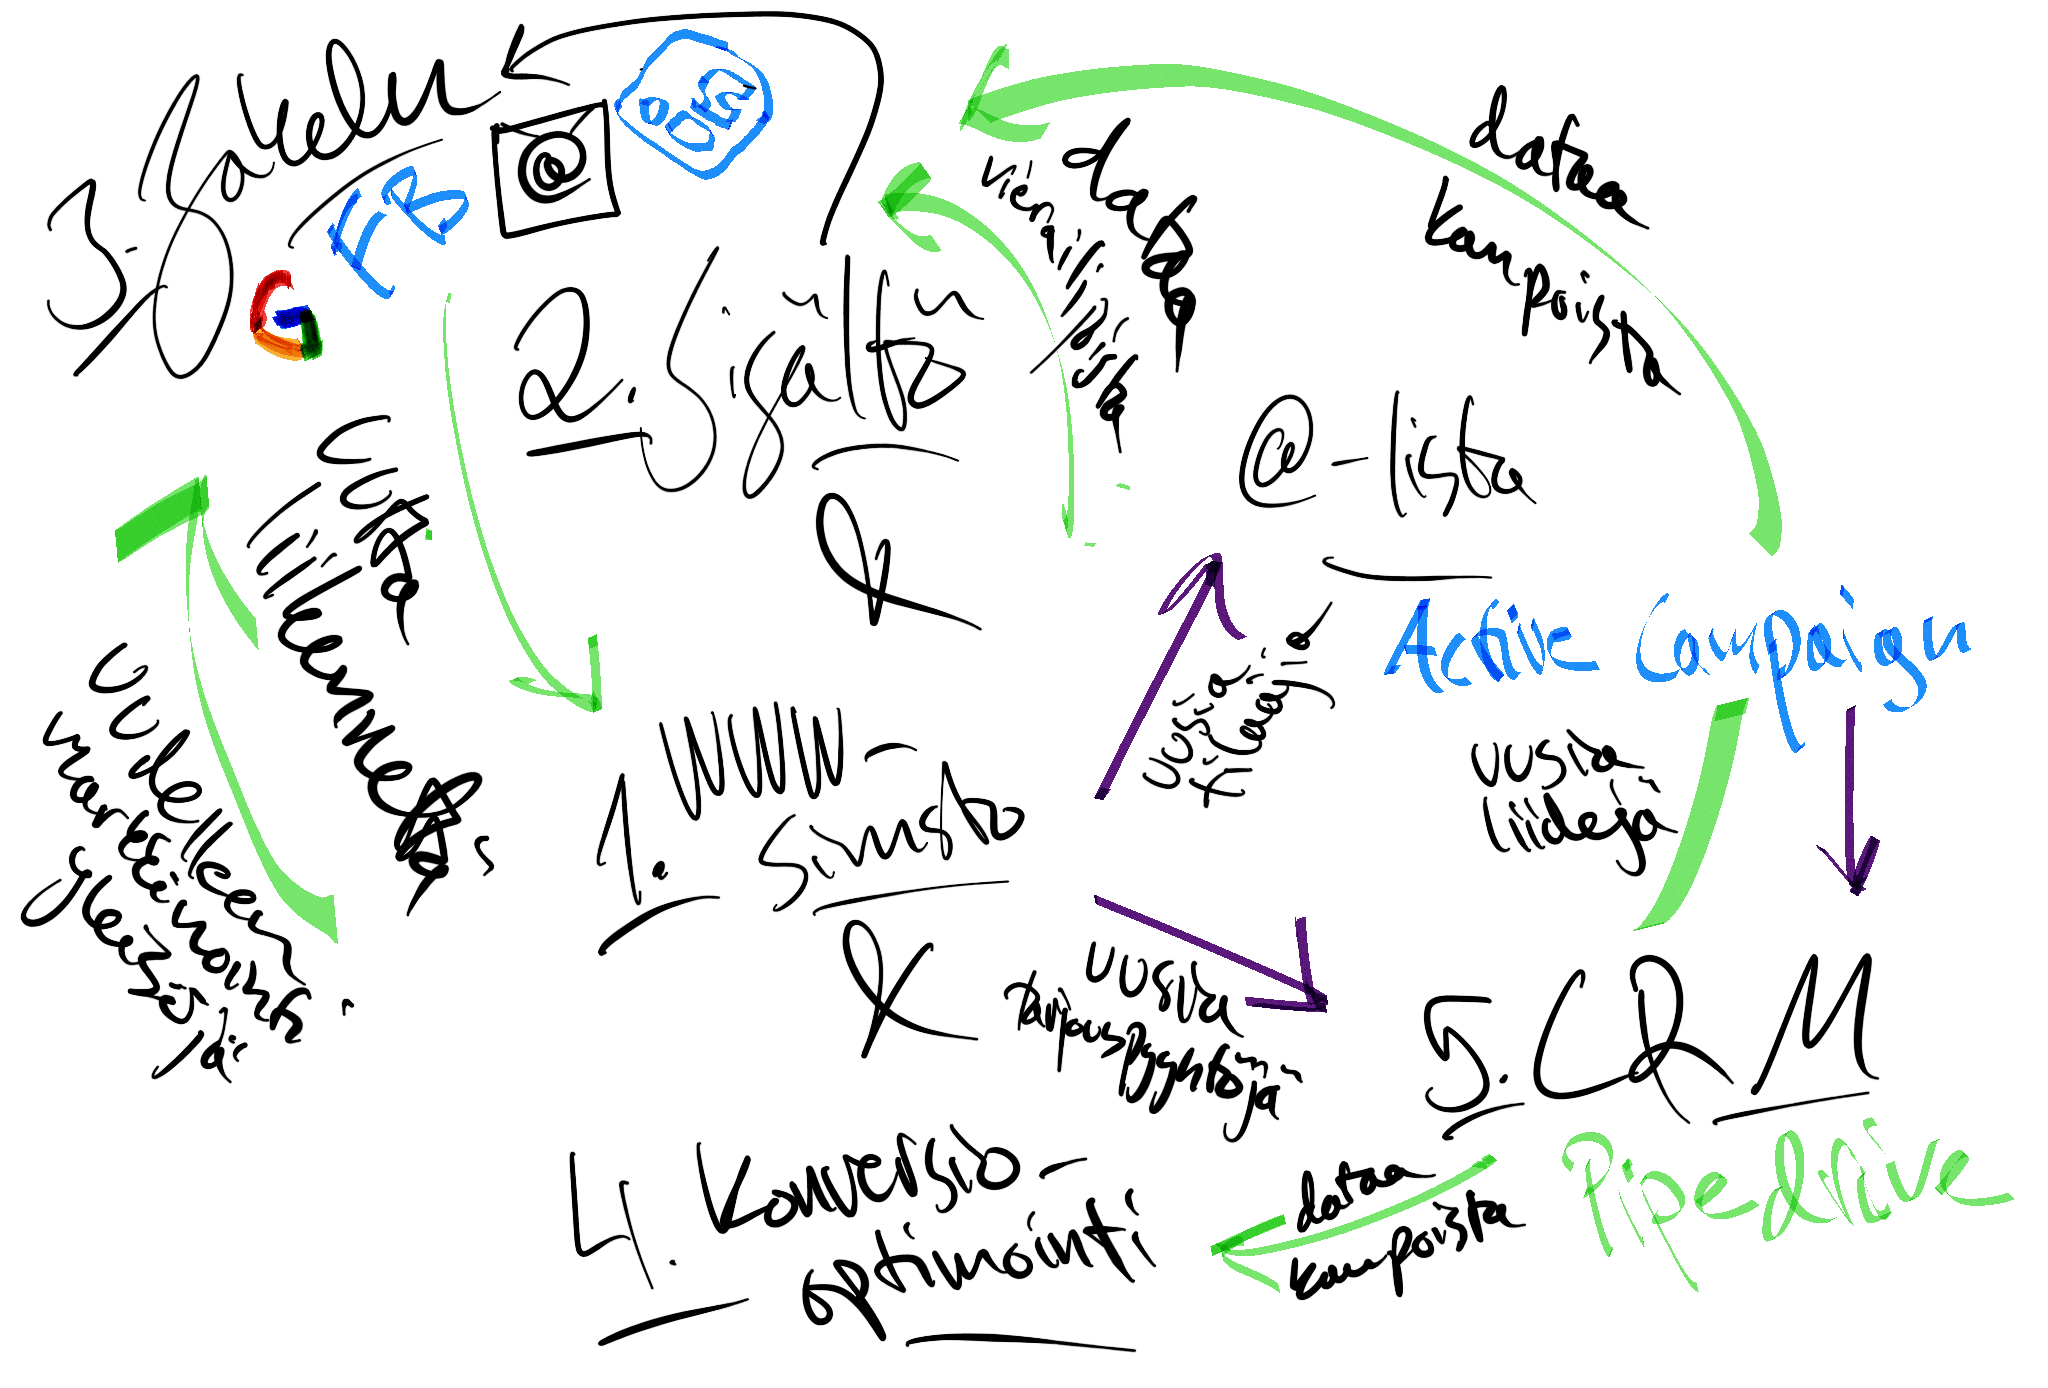 3. Jakelu
FB
@
G
2. Sisältö
&
dataa
vierailijoista
dataa
kaupoista
@-lista
Active Campaign
uutta
liikennettä
uudelleen
markkinointi
yleisöjä
1. WWW-
sivusto
&
uusia
tilaajia
uusia
liidejä
uusia
tarjouspyyntöjä
5. CRM
Pipedrive
4. Konversio-
optimointi
dataa
kaupoista